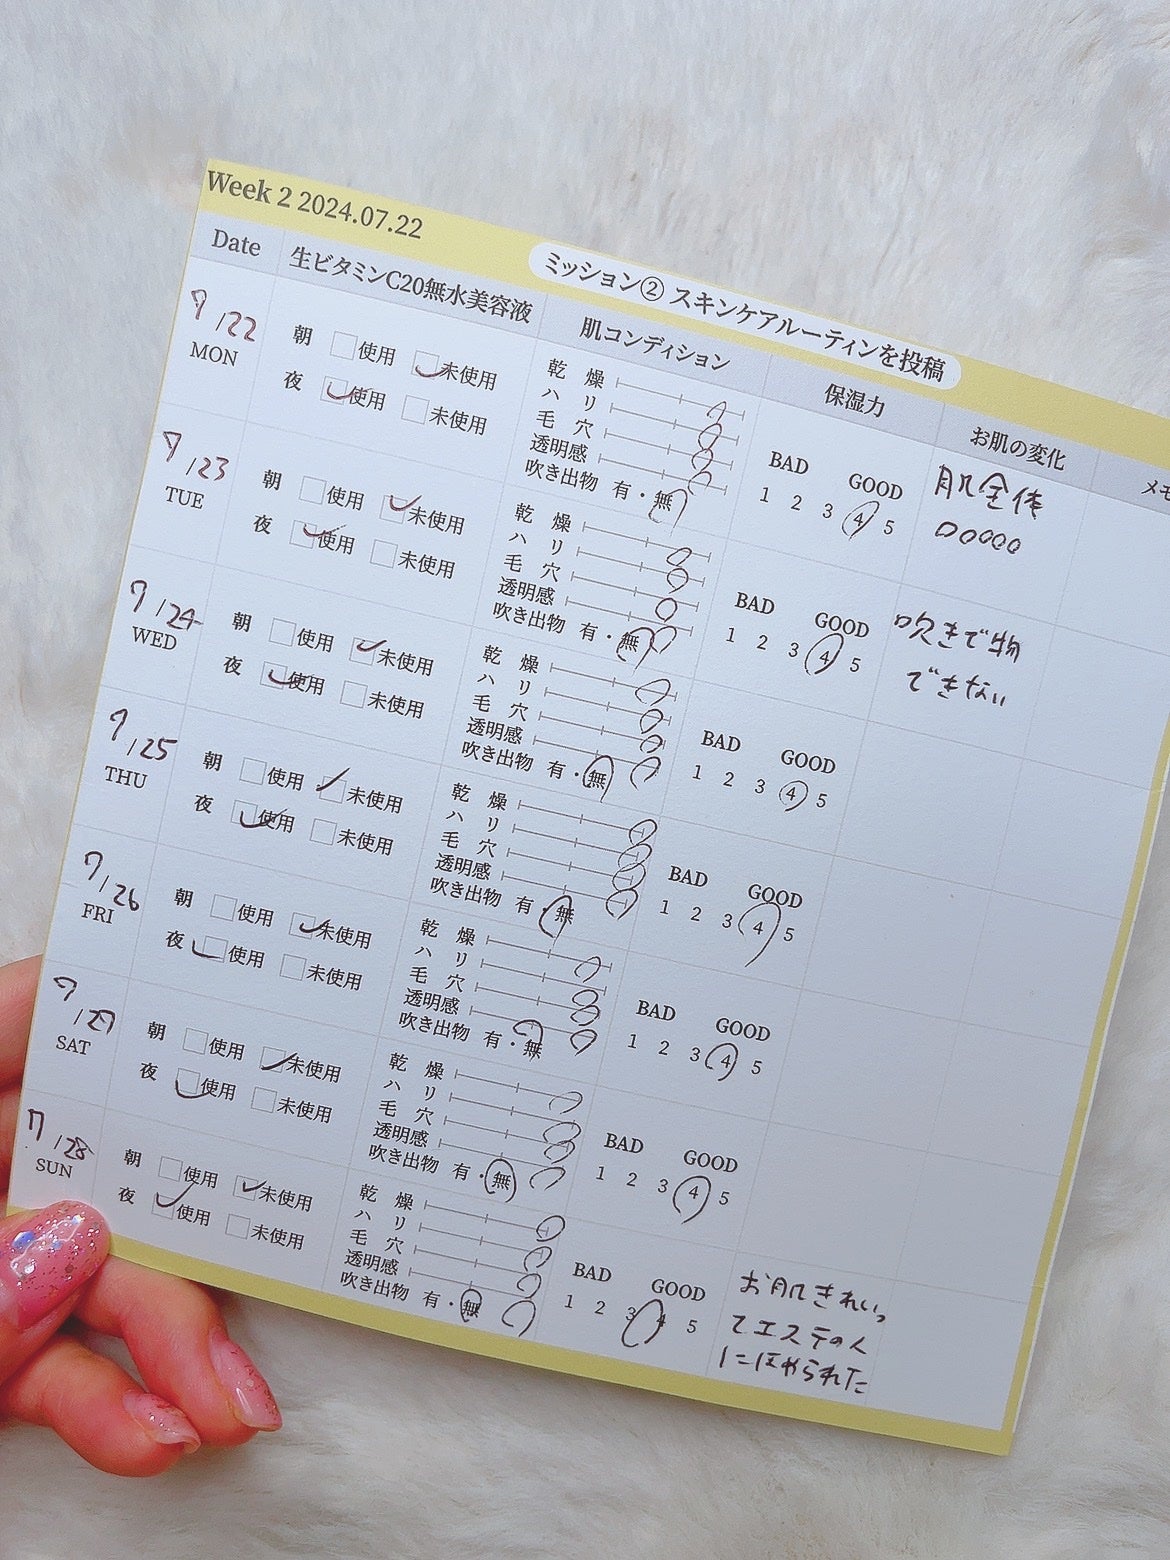 Week 2 2024.07.22
ミッション② スキンケアルーティンを投稿
Date 生ビタミンC20無水美容液 肌コンディション 保湿力 お肌の変化 メモ
7/22
MON
朝 使用 未使用
夜 使用 未使用
乾燥
ハリ
毛穴
透明感
吹き出物 有・無
BAD GOOD
1 2 3 4 5
肌全体
7/23
TUE
朝 使用 未使用
夜 使用 未使用
乾燥
ハリ
毛穴
透明感
吹き出物 有・無
BAD GOOD
1 2 3 4 5
吹きで物
できない
7/24
WED
朝 使用 未使用
夜 使用 未使用
乾燥
ハリ
毛穴
透明感
吹き出物 有・無
BAD GOOD
1 2 3 4 5
7/25
THU
朝 使用 未使用
夜 使用 未使用
乾燥
ハリ
毛穴
透明感
吹き出物 有・無
BAD GOOD
1 2 3 4 5
7/26
FRI
朝 使用 未使用
夜 使用 未使用
乾燥
ハリ
毛穴
透明感
吹き出物 有・無
BAD GOOD
1 2 3 4 5
7/27
SAT
朝 使用 未使用
夜 使用 未使用
乾燥
ハリ
毛穴
透明感
吹き出物 有・無
BAD GOOD
1 2 3 4 5
7/28
SUN
朝 使用 未使用
夜 使用 未使用
乾燥
ハリ
毛穴
透明感
吹き出物 有・無
BAD GOOD
1 2 3 4 5
お肌きれいっ
てエステの人
にほめられた